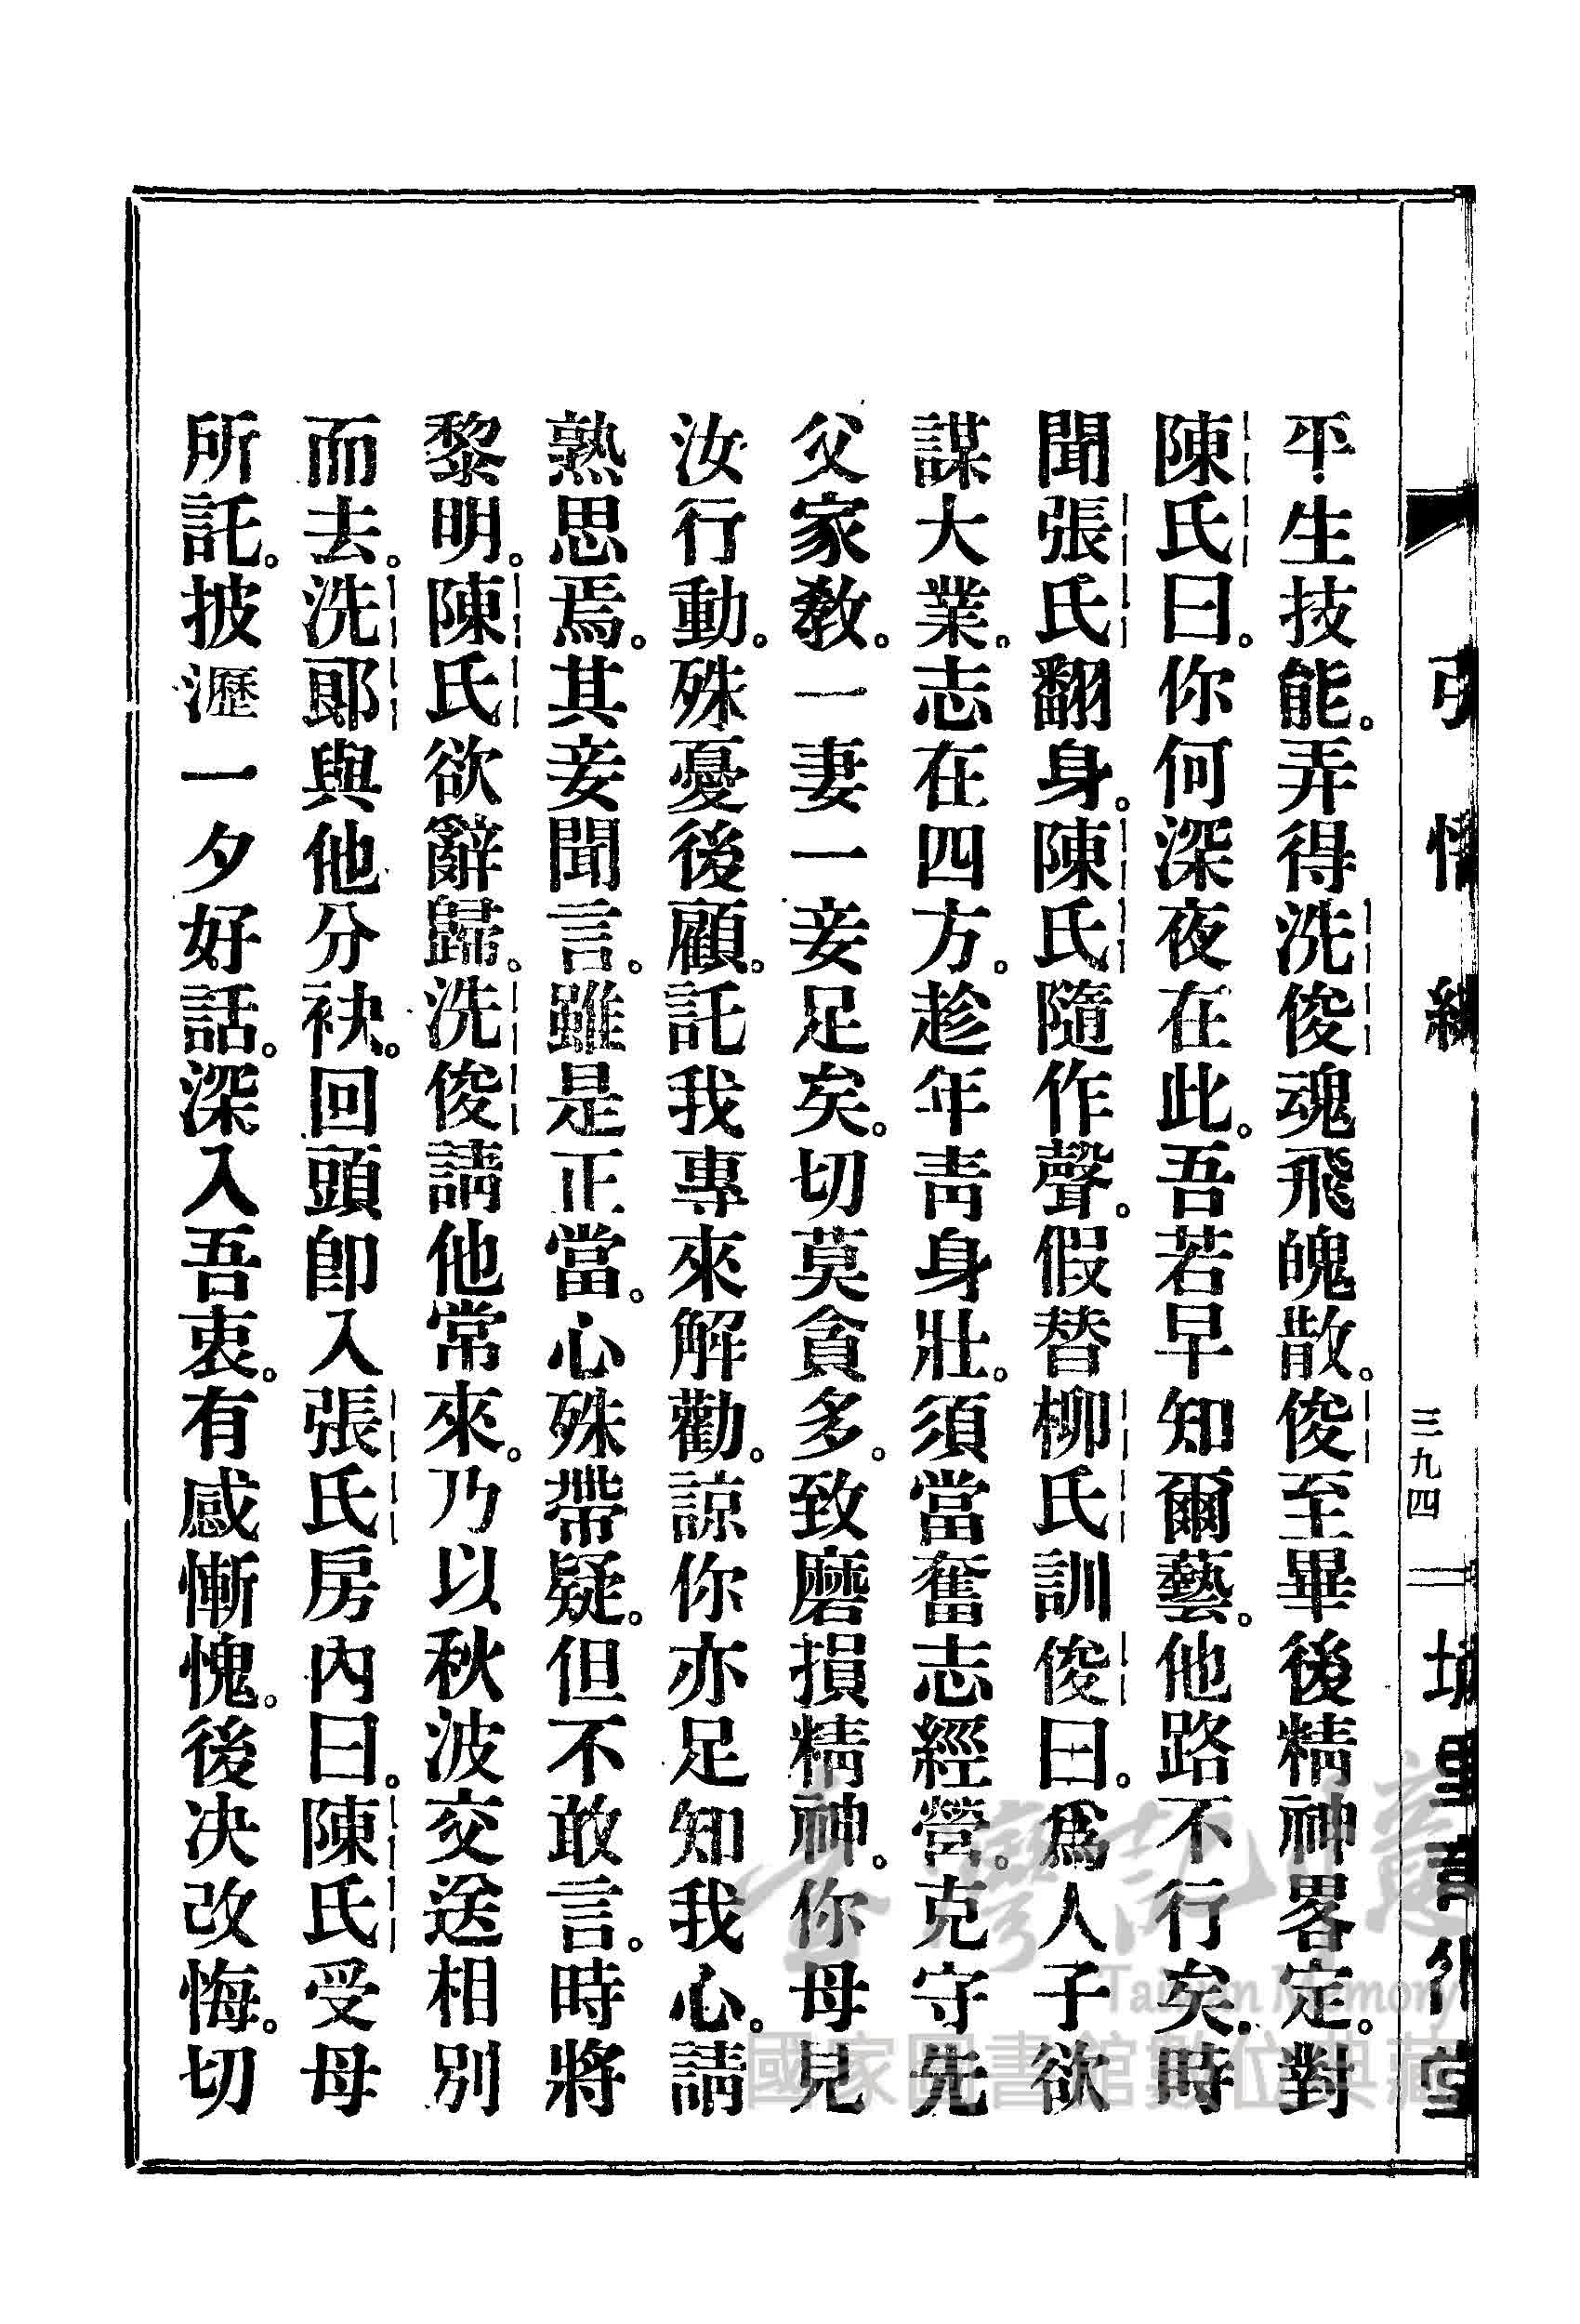 三九四
平生技能。弄得洗俊魂飛魄散。俊至畢後精神畧定。對
陳氏曰。你何深夜在此。吾若早知爾藝。他路不行矣。時
聞張氏翻身。陳氏隨作聲。假替柳氏訓俊曰。爲人子欲
謀大業。志在四方。趁年靑身壯。須當奮志經營。克守先
父家敎。一妻一妾足矣。切莫貪多。致磨損精神。你母見
汝行動。殊憂後顧。託我專來解勸。諒你亦足知我心。請
熟思焉。其妾聞言。雖是正當。心殊帶疑。但不敢言。時將
黎明。陳氏欲辭歸。洗俊請他常來。乃以秋波交送相別
而去。洗郞與他分袂。回頭卽入張氏房內曰。陳氏受母
所託。披瀝一夕好話。深入吾衷。有感慚愧。後决改悔。切
Taiwan Memory
國家圖書館數位典藏